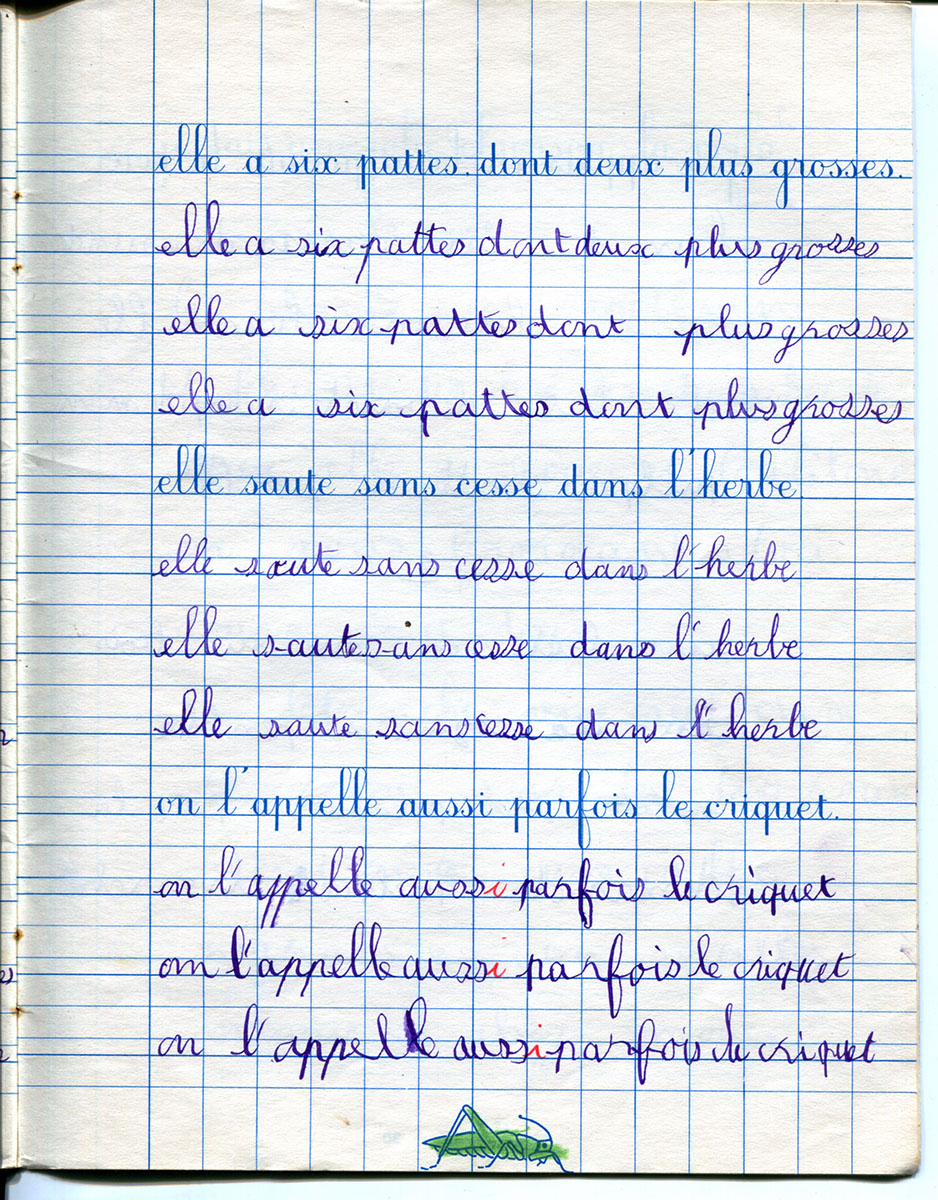 elle a six pattes. dont deux plus grosses.
elle a six pattes dont deux plus grosses
elle a six pattes dont plus grosses
elle a six pattes dont plus grosses
elle saute sans cesse dans l'herbe
elle saute sans cesse dans l'herbe
elle saute sans cesse dans l'herbe
elle saute sans cesse dans l'herbe
on l'appelle aussi parfois le criquet.
on l'appelle aussi parfois le criquet
on l'appelle aussi parfois le criquet
on l'appelle aussi parfois le criquet